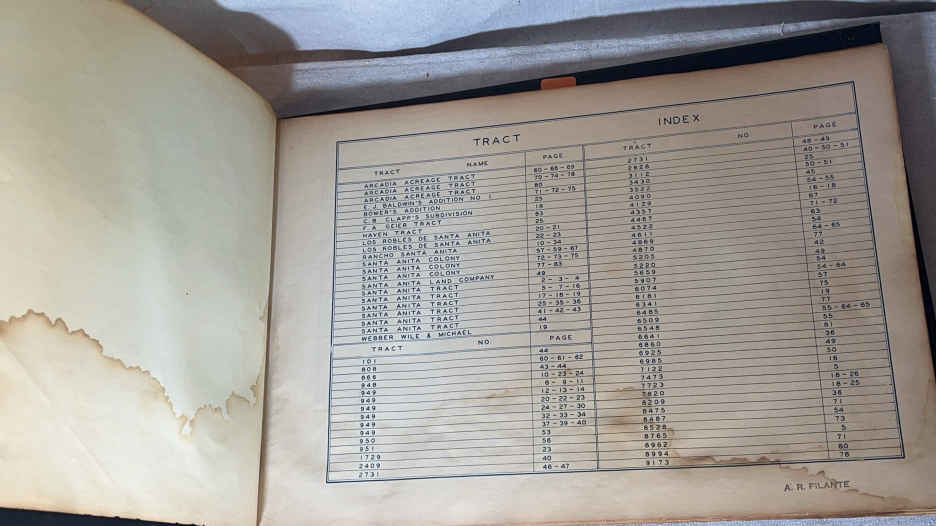 TRACT INDEX
TRACT NAME PAGE
ARCADIA ACREAGE TRACT 60-68-69
ARCADIA ACREAGE TRACT 70-74-78
ARCADIA ACREAGE TRACT 80
E.J. BALDWIN'S ADDITION NO 1 71-72-75
BOWER'S ADDITION 25
C.B. CLAPP'S SUBDIVISION 18
F.A. GEIER TRACT 63
HAVEN TRACT 25
LOS ROBLES DE SANTA ANITA 20-21
LOS ROBLES DE SANTA ANITA 22-23
RANCHO SANTA ANITA 10-34
SANTA ANITA COLONY 57-59-67
SANTA ANITA COLONY 72-73-75
SANTA ANITA COLONY 77-83
SANTA ANITA LAND COMPANY 49
SANTA ANITA TRACT 2-3-4
SANTA ANITA TRACT 5-7-16
SANTA ANITA TRACT 17-18-19
SANTA ANITA TRACT 25-35-36
SANTA ANITA TRACT 41-42-43
SANTA ANITA TRACT 44
WEBBER WILE & MICHAEL 19
TRACT NO. PAGE
101 44
808 60-61-62
866 43-44
948 10-23-24
949 6-9-11
949 12-13-14
949 20-22-23
949 24-27-30
949 32-33-34
949 37-39-40
950 53
951 56
1729 23
2409 40
2731 46-47
TRACT NO PAGE
2731 48-49
2828 40-50-51
3112 25
3430 50-51
3522 45
4090 54-55
4129 18-18
4357 61
4467 71-72
4522 63
4611 54
4869 64-65
4870 77
5205 42
5220 49
5659 54
5907 54-64
6074 57
6181 75
6341 19
6485 77
6509 55-64-65
6548 55
6641 51
6860 36
6925 49
6985 50
7122 18
7473 5
7723 18-26
7820 18-25
8209 36
8475 71
8487 54
8526 73
8765 5
8962 71
8994 60
9173 78
A. R. FILANTE